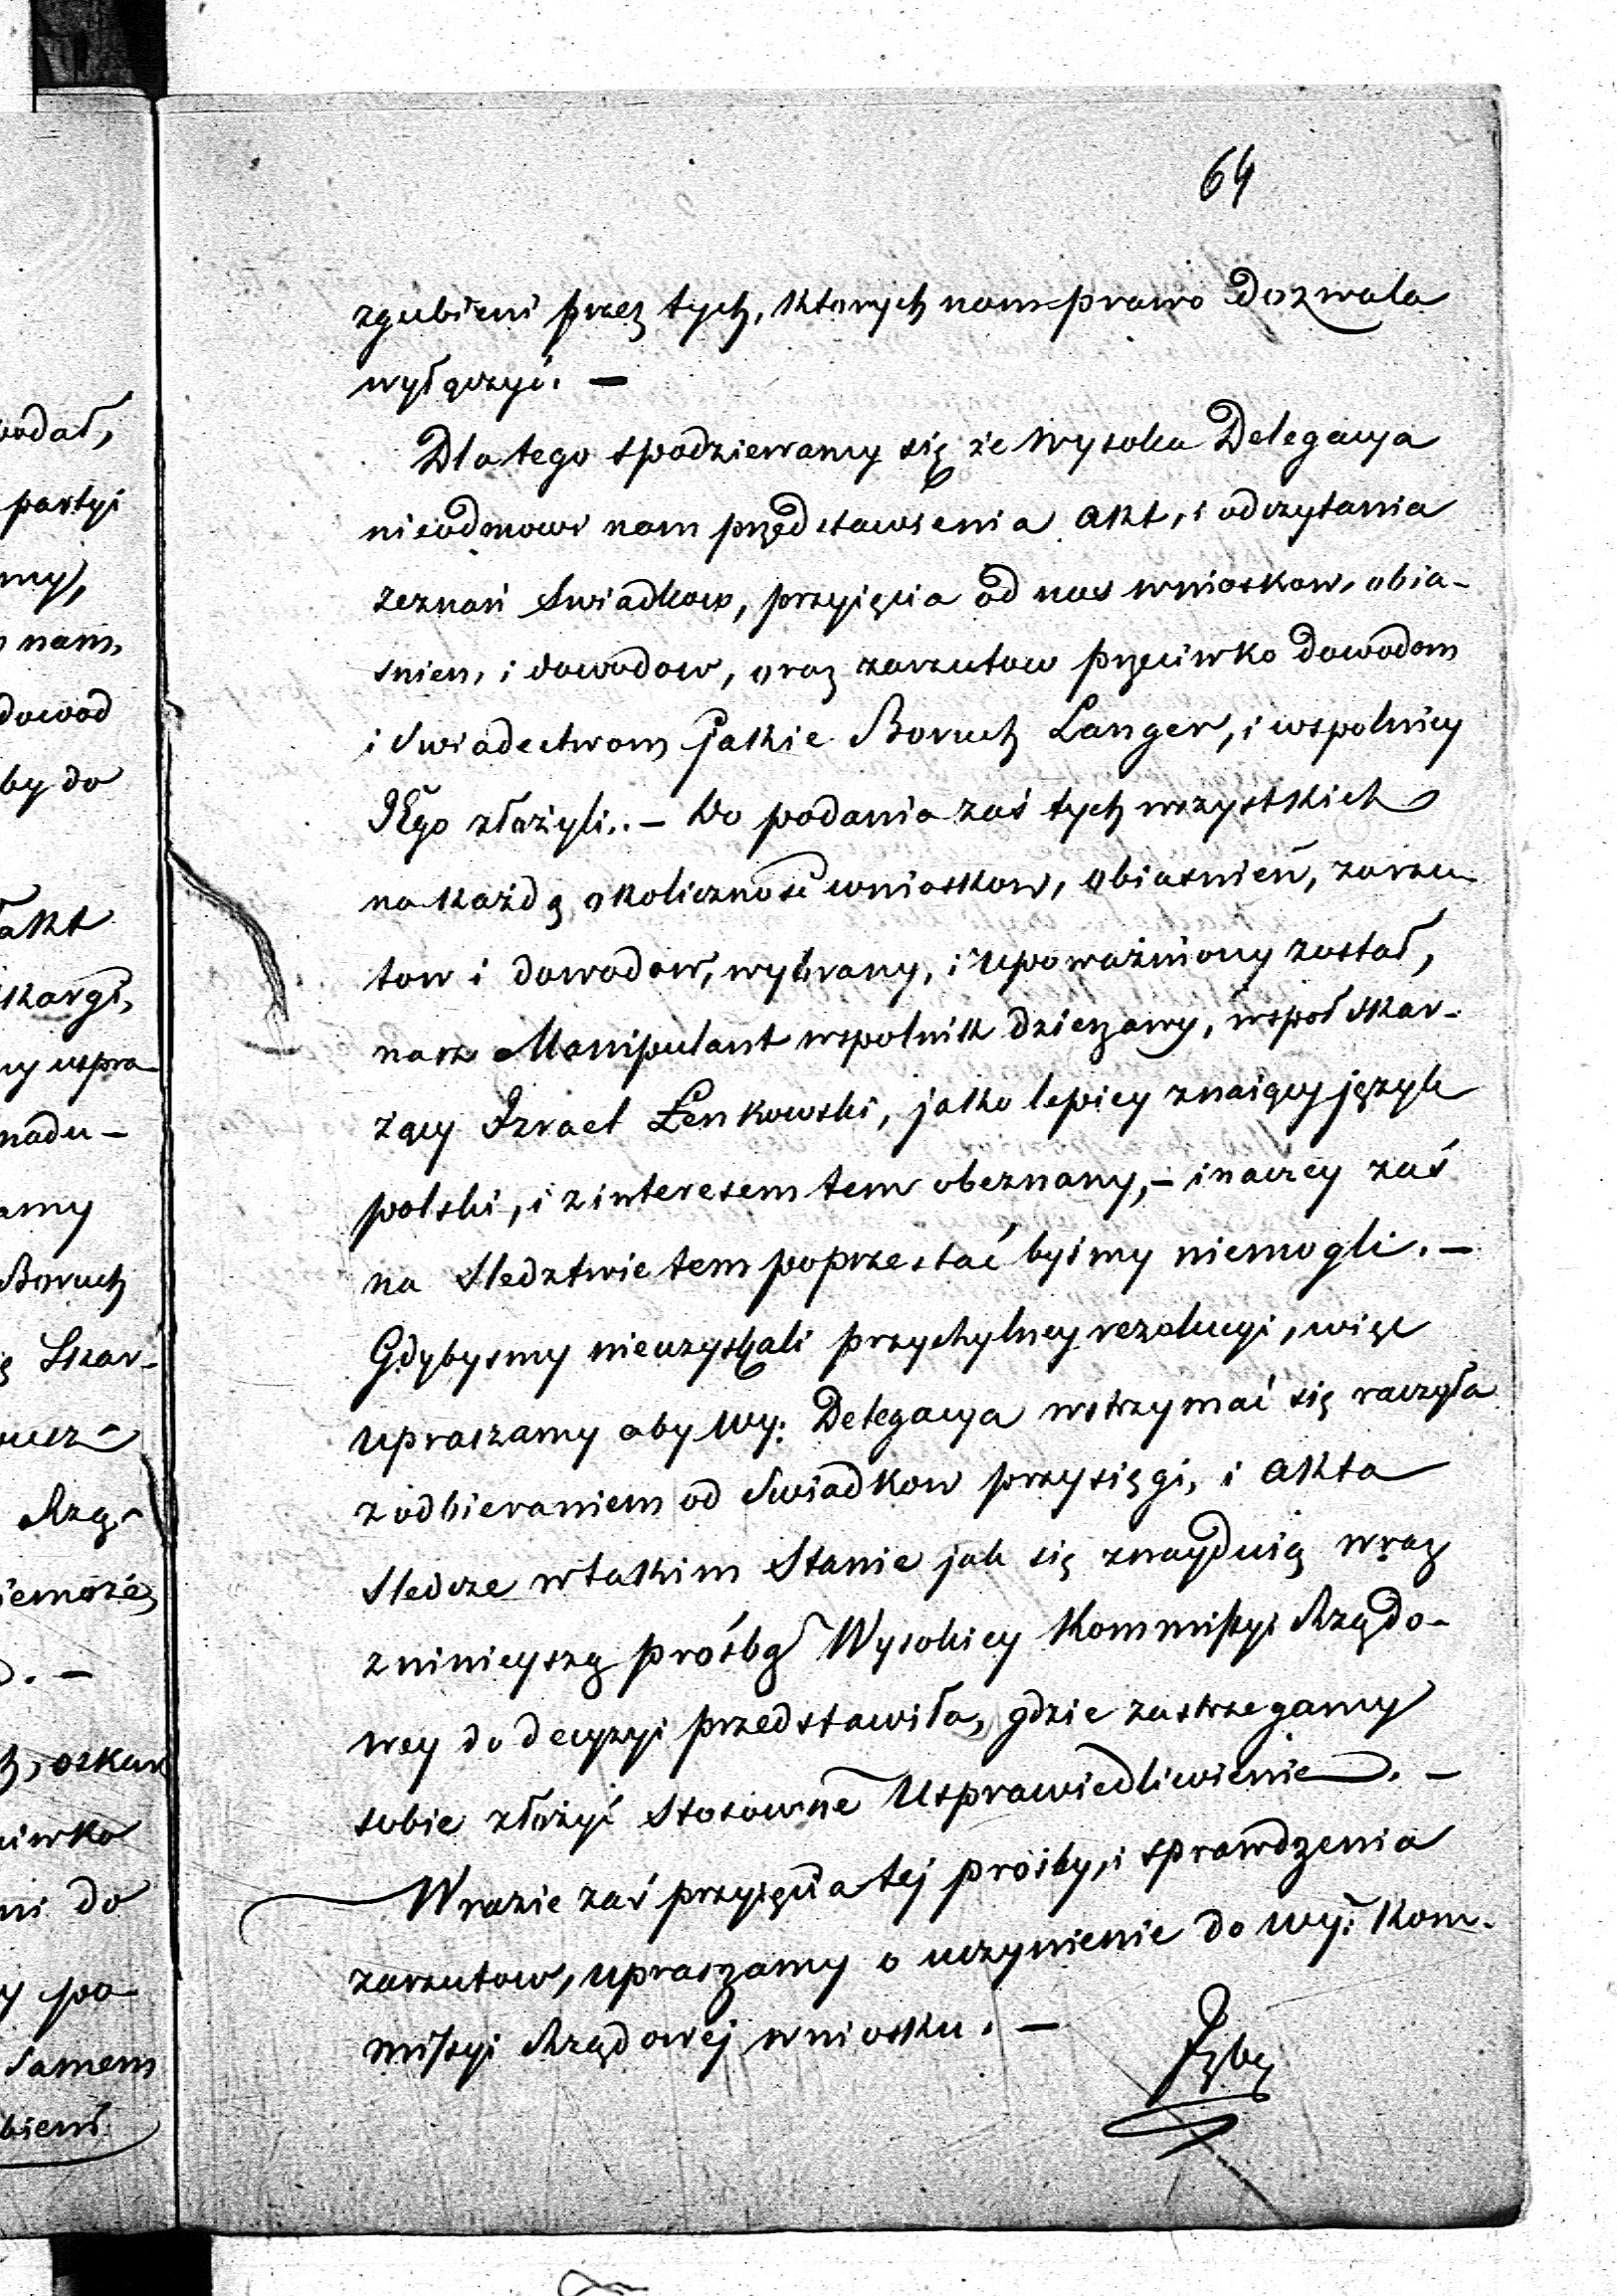 64
zgubieni przez tych, ktorych nam prawo dozwala
wyłączyć. —
Dla tego spodziewamy się że Wysoka Delegacya
nieodmowi nam przedstawienia akt, i odczytania
zeznań Swiadkow, przyięcia od nas wnioskow, obia-
snien, i dowodow, oraz zarzutow przeciwko dowodom
i Swiadectwom jakie Boruch Langer, i wspolnicy
Jego złożyli.. — Do podania zaś tych wszystkich
na każdą okoliczność wnioskow, obiasnień, zarzu-
tow i dowodow, wybrany, i upoważniony został,
nasz Manipulant wspolnik dzierzawy, wspoł skar-
żący Izrael Łenkowski, jako lepiey znaiący język
polski, i z interesem tem obeznany, — inaczey zaś
na Sledztwie tem poprzestać byśmy niemogli. —
Gdybysmy nieuzyskali przychylney rezolucyi, więc
upraszamy aby Wy: Delegacya wstrzymać się raczyła
z odbieraniem od Swiadkow przysięgi, i akta
Sledcze w takim Stanie jak się znayduią wraz
z ninieyszą prośbą Wysokiey Kommissyi Rządo-
wey do decyzyi przedstawiła, gdzie zastrzegamy
sobie złożyć Stosowne Usprawiedliwienie. —
W razie zaś przyięcia tej prośby, i sprawdzenia
zarzutow, upraszamy o uczynienie do Wy: Kom-
missyi Rządowej wniosku. —
wodał,
partyi
nam,
dowod
by do
akt
skargi,
nadu-
Boruch
Skar-
Rzą-
niemoże
. —
oskar
ciwko
ni do
po
Samem
bieni